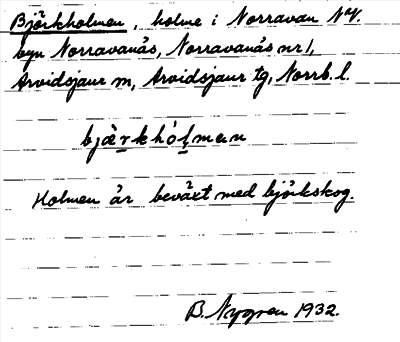 Björkholmen, holme i Norravan NV.
byn Norravanäs, Norravanäs nr 1,
Arvidsjaur sn, Arvidsjaur tg, Norrb. l.
bjärkhólmen
Holmen är beväxt med björkskog.
B. Nygren 1932.